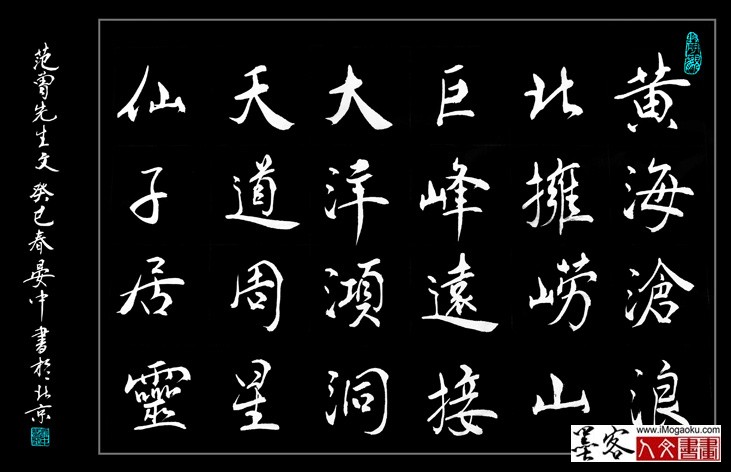 黄海滄浪
北擁嶗山
巨峰遠接
大洋澒洞
天道周星
仙子居靈
范曾先生文癸巳春晏中書於北京
www.iMogaoku.com
墨客
人文書畫